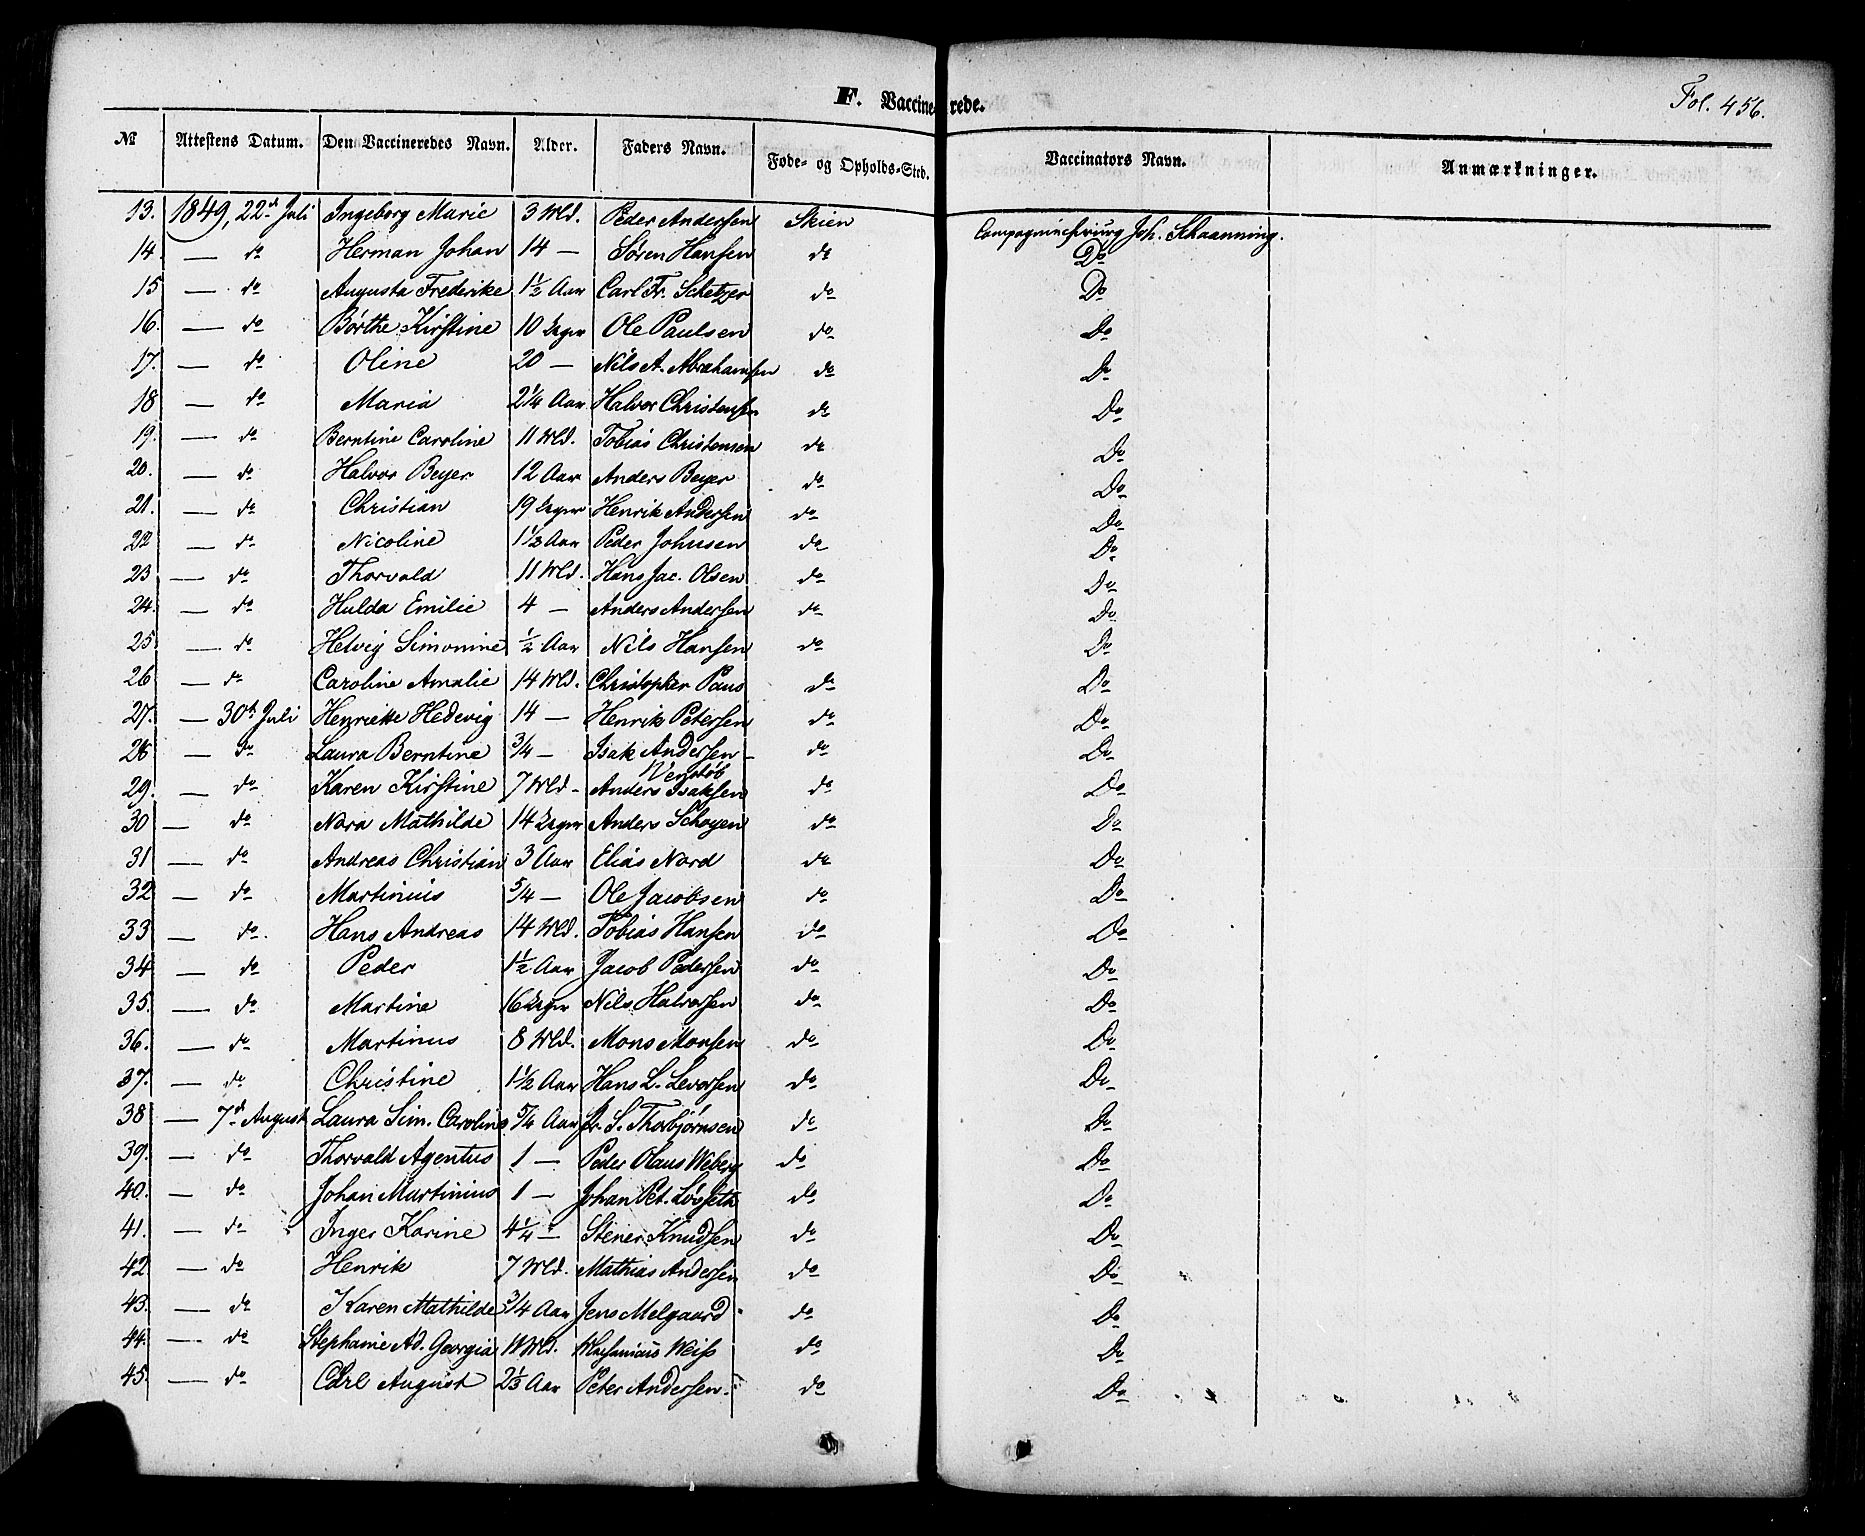 F. Vaccinerede.
Fol. 456.
№ Attestens Datum. Den Vaccineredes Navn. Alder. Faders Navn. Føde- og Opholds-Sted. Vaccinators Navn. Anmærkninger.
13. 1849, 22d Juli Ingeborg Marie 3 Md. Peder Anderssen Skien Compagniechirurg Joh. Schaanning.
14. — do Herman Johan 14 — Søren Hanssen do Do
15 — do Augusta Frederike 1 1/2 Aar Carl Fr. Schetzer do Do
16. — do Børthe Kirstine 10 Uger Ole Paulsen do Do
17. — do Oline 20 — Nils A. Abrahamsen do Do
18 — do Maria 2 1/4 Aar Halvor Christensen do Do
19. — do Berntine Caroline 11 Md. Tobias Christensen do Do
20. — do Halvor Beyer 12 Aar Anders Beyer do Do
21. — do Christian 19 Uger Henrik Anderssen do Do
22 — do Nicoline 1 1/2 Aar Peder Johnsen do Do
23 — do Thorvald 11 Md. Hans Jac. Olsen do Do
24. — do Hulda Emilie 4 — Anders Anderssen do Do
25 — do Helvig Simonine 1/2 Aar Nils Hanssen do Do
26 — do Caroline Amalie 14 Md. Christopher Paus do Do
27. — 30te Juli Henriette Hedevig 14 — Henrik Peterssen do Do
28 — do Laura Berntine 3/4 — Isak Anderssen do Do
29. — do Karen Kirstine 7 Md. Anders Isakssen Venstøb do Do
30 — do Nora Mathilde 14 Uger Anders Schøyen do Do
31 — do Andreas Christian 3 Aar Elias Nord do Do
32 — do Martinius 5/4 — Ole Jacobsen do Do
33 — do. Hans Andreas 14 Md. Tobias Hanssen do Do
34 — do Peder 1 1/2 Aar Jacob Pederssen do Do
35. — do Martine 16 Uger Nils Halvorssen do Do
36. — do Martinus 8 Md. Mons Monssen do Do
37. — do Christine 1 1/2 Aar Hans L. Levorssen do Do
38 — 7d August Laura Sim. Caroline 5/4 Aar S. Thorbjørnsen do Do
39. — do Thorvald Agentus 1 — Peder Olaus Weberg do Do
40. — do Johan Martinius 1 — Johan Pet. Løvseth do Do
41. — do Inger Karine 4 1/4 — Stener Knudssen do Do
42 — do Henrik 7 Md. Mathias Anderssen do Do
43. — do Karen Mathilde 3/4 Aar Jens Melgaard do Do
44. — do Stephanie Ad. Georgia 11 Md. Weiss do Do
45. — do Carl August 2 1/3 Aar Peter Anderssen. do Do